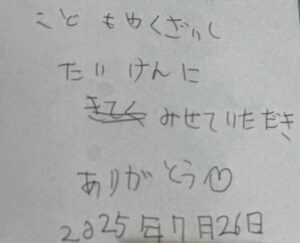 こどもやくざいし
たいけんに
みせていただき
ありがとう♡
2025年7月26日